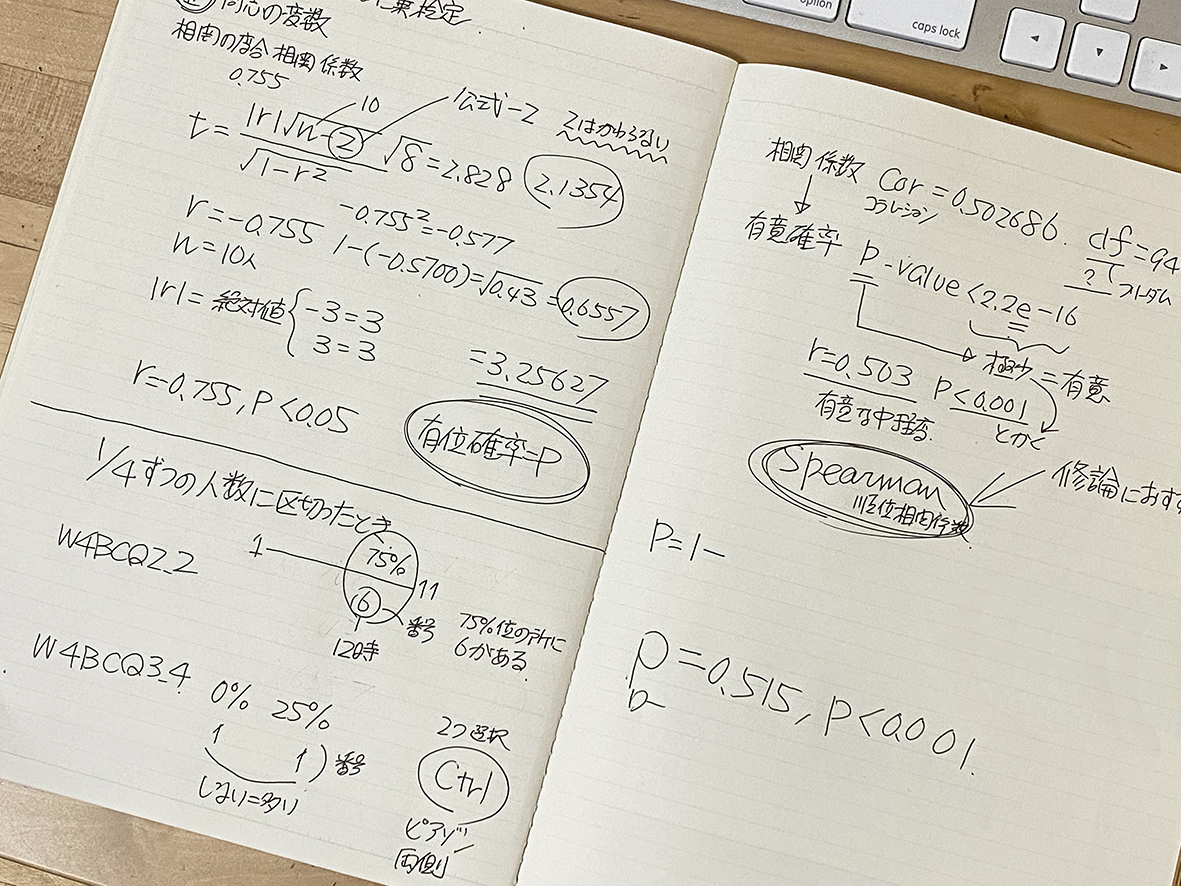 同志の変数
相関の度合 相関係数
0.755
10
公式-2 2はかわらない
t = |r|√n-2 / √1-r² √8 = 2.828 2.1354
-0.755² = -0.577
r = -0.755 1-(-0.5700) = √0.43 = 0.6557
n = 10人
|r| = 絶対値 { -3 = 3
3 = 3
= 3.25627
r = -0.755, P < 0.05
有位確率=P
1/4ずつの人数に区切ったとき
W4BCQ2_2
1 75% 11
6 番号
12時
75%位の所に
6がある
W4BCQ3_4
0% 25%
1 1 番号
しない=多い
2つ選択
Ctrl
ピアソン
両側
相関係数 Cor = 0.502686. df = 94
コラレーション
有意確率 p-value < 2.2e-16
極少=有意
r = 0.503 p < 0.001
とかく
Spearman
順位相関係数
修論におすす
P = 1-
ρ = 0.515, P < 0.001.
ロー
option
caps lock